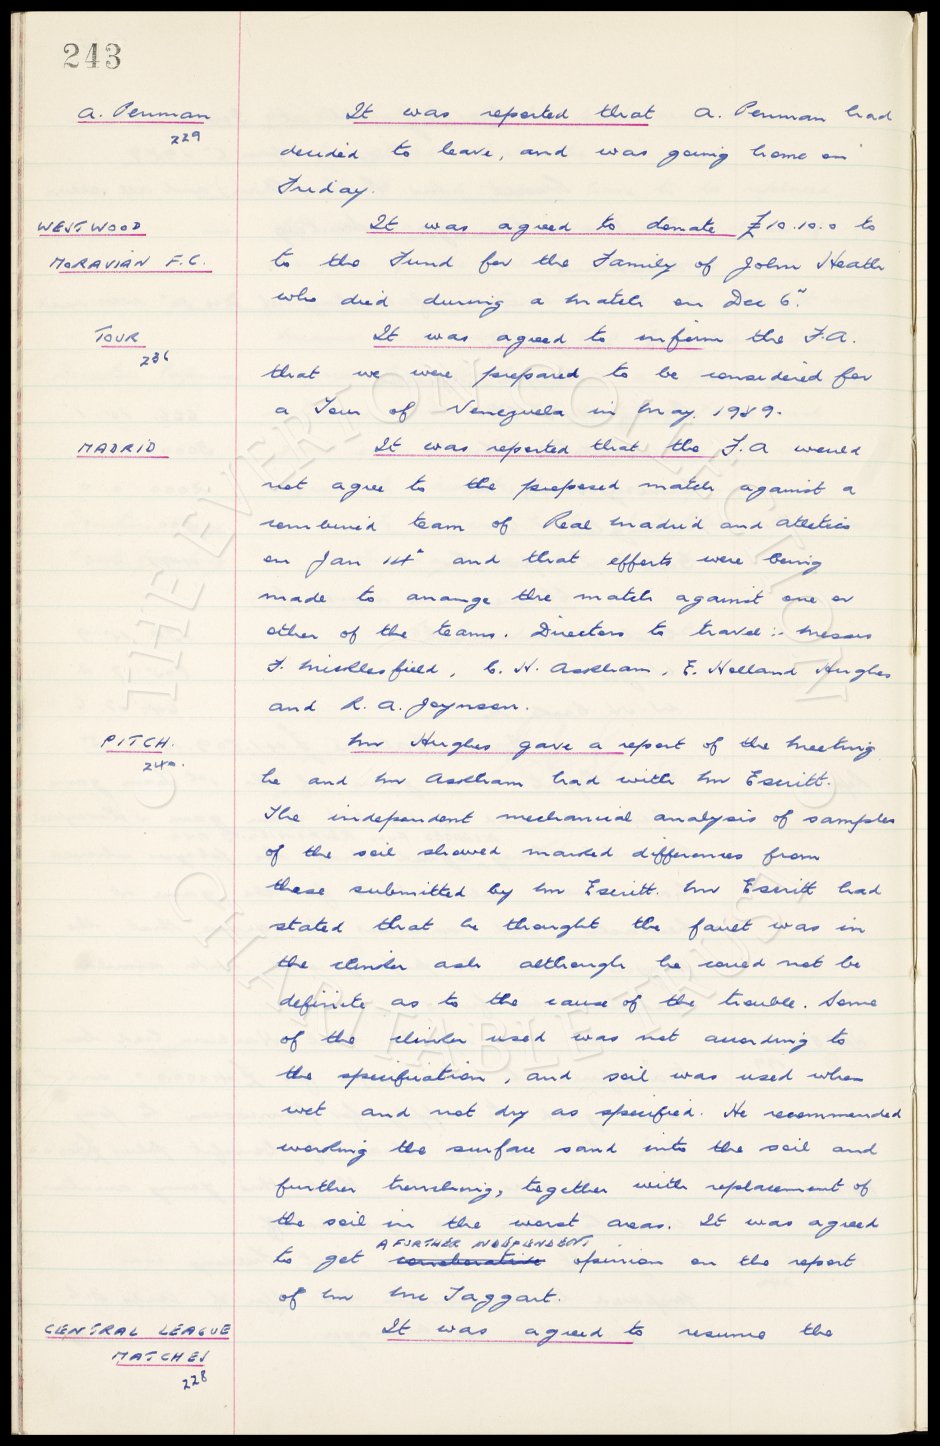 243
A. Penman
229
It was reported that A. Penman had
decided to leave, and was going home on
Friday.
WESTWOOD
MORAVIAN F.C.
It was agreed to donate £10.10.0 to
to the Fund for the Family of John Heath
who died during a match on Dec 6".
TOUR
236
It was agreed to inform the F.A.
that we were prepared to be considered for
a Tour of Venezuela in May, 1959.
MADRID
It was reported that the F.A would
not agree to the proposed match against a
combined team of Real Madrid and Atletico
on Jan 14" and that efforts were being
made to arrange the match against one or
other of the teams. Directors to travel :- Messrs
F. Micklesfield, C. H. Askham, E. Holland Hughes
and R. A. Joynson.
PITCH.
240.
Mr Hughes gave a report of the meeting
he and Mr Askham had with Mr Escritt.
The independent mechanical analysis of samples
of the soil showed marked differences from
those submitted by Mr Escritt. Mr Escritt had
stated that he thought the fault was in
the clinker ash although he could not be
definite as to the cause of the trouble. Some
of the clinker used was not according to
the specification, and soil was used when
wet and not dry as specified. He recommended
working the surface sand into the soil and
further trenching, together with replacement of
the soil in the worst areas. It was agreed
A FURTHER INDEPENDENT
to get opinion on the report
of Mr McTaggart.
CENTRAL LEAGUE
MATCHES
228
It was agreed to resume the
THE EVERTON COLLECTION
CHARITABLE TRUST